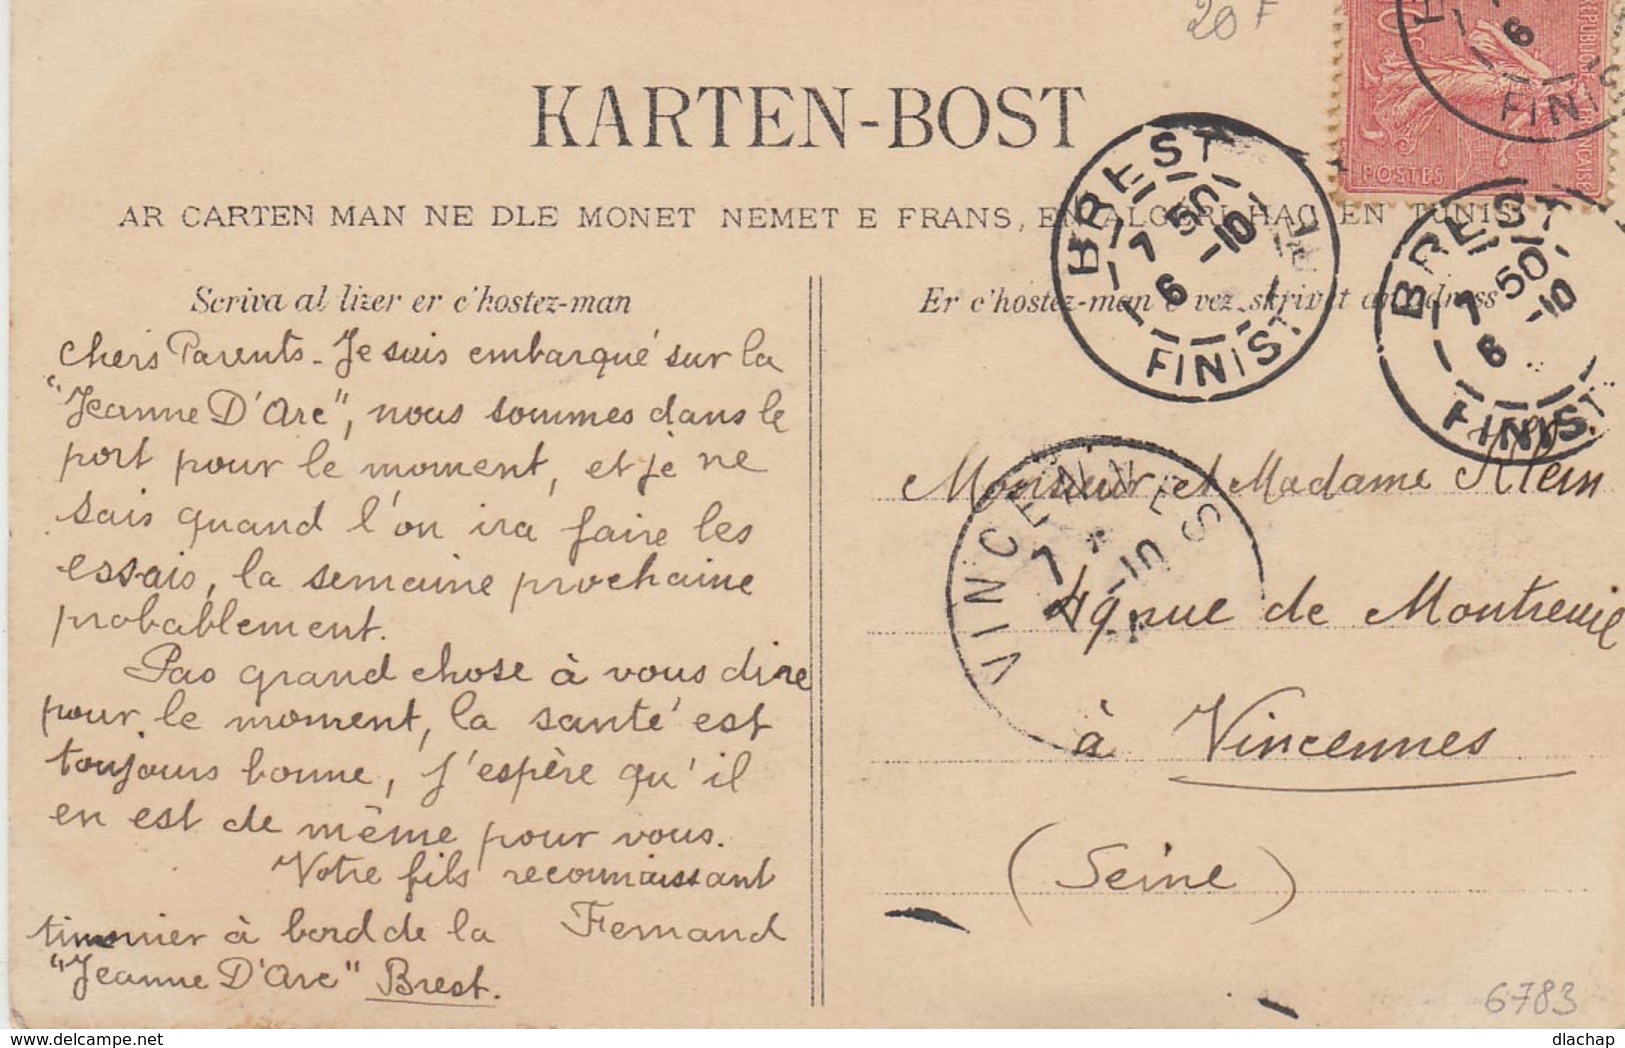 20 F
KARTEN-BOST
AR CARTEN MAN NE DLE MONET NEMET E FRANS, EN ALGERI HAG EN TUNIS
Scriva al lizer er c'hostez-man
Er c'hostez-man e vez skrivet an adress
chers Parents - Je suis embarqué sur la
"Jeanne D'Arc", nous sommes dans le
port pour le moment, et je ne
sais quand l'on ira faire les
essais, la semaine prochaine
probablement.
Pas grand chose à vous dire
pour le moment, la santé est
toujours bonne, j'espère qu'il
en est de même pour vous.
Votre fils reconnaissant
Fernand
timonier à bord de la
"Jeanne D'Arc" Brest.
BREST
7 50
6 -10
FINIST.
BREST
7 50
6 -10
FINIST.
6
FINIS
REPUBLIQUE FRANÇAISE
POSTES
VINCENNES
7 -10
Monsieur et Madame Klein
49 rue de Montreuil
à Vincennes
(Seine)
6783
delcampe.net
dlachap